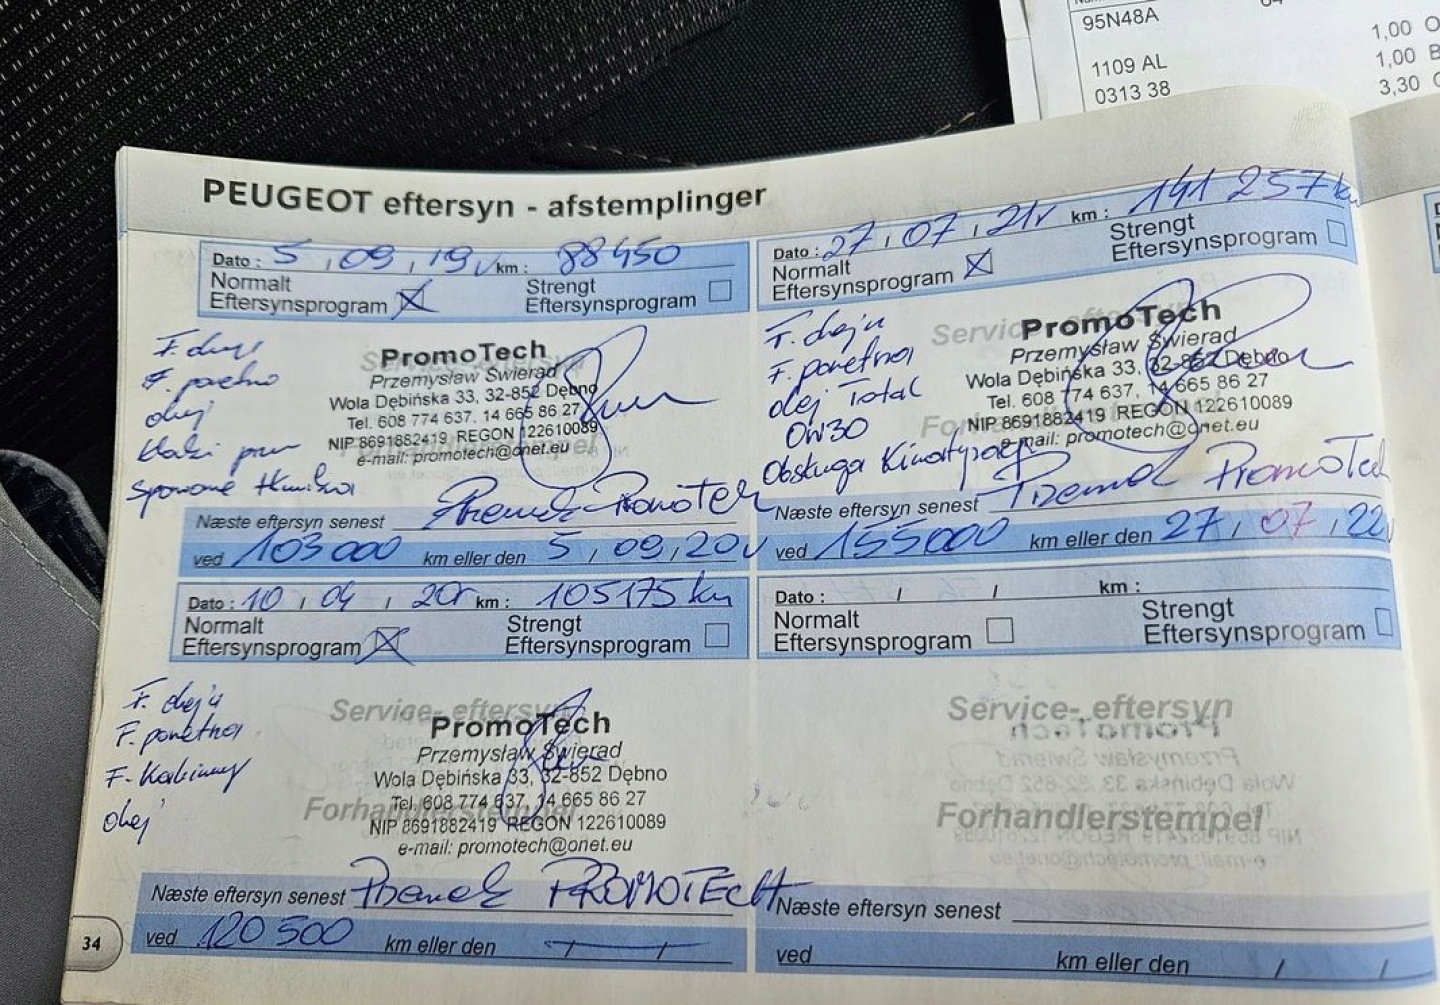 95N48A
1,00
1109 AL
1,00 B
0313 38
3,30
PEUGEOT eftersyn - afstemplinger
Dato : 5 , 09 , 19 km : 88450
Normalt
Eftersynsprogram
Strengt
Eftersynsprogram
F.
F.
olej
PromoTech
Przemysław Świerad
Wola Dębińska 33, 32-852 Dębno
Tel. 608 774 637, 14 665 86 27
NIP 8691882419, REGON 122610089
e-mail: promotech@onet.eu
Næste eftersyn senest
ved 103 000 km eller den 5 , 09 , 20
Dato : 27 , 07 , 21r km : 141 257 km
Normalt
Eftersynsprogram
Strengt
Eftersynsprogram
F. oleju
F.
olej Total
0W30
Obsługa Klimatyzacji
Service- eftersyn
Forhandlerstempel
PromoTech
Przemysław Świerad
Wola Dębińska 33, 32-852 Dębno
Tel. 608 774 637, 14 665 86 27
NIP 8691882419, REGON 122610089
e-mail: promotech@onet.eu
Næste eftersyn senest Przemek PromoTech
ved 155000 km eller den 27 , 07 , 22
Dato : 10 , 04 , 20r km : 105175 km
Normalt
Eftersynsprogram
Strengt
Eftersynsprogram
F. oleju
F.
F. Kabinowy
olej
Service- eftersyn
Forhandlerstempel
PromoTech
Przemysław Świerad
Wola Dębińska 33, 32-852 Dębno
Tel. 608 774 637, 14 665 86 27
NIP 8691882419 REGON 122610089
e-mail: promotech@onet.eu
Næste eftersyn senest Przemek PROMOTECH
ved 120 500 km eller den
Dato : / / km :
Normalt
Eftersynsprogram
Strengt
Eftersynsprogram
Service- eftersyn
Forhandlerstempel
Næste eftersyn senest
ved km eller den / /
34